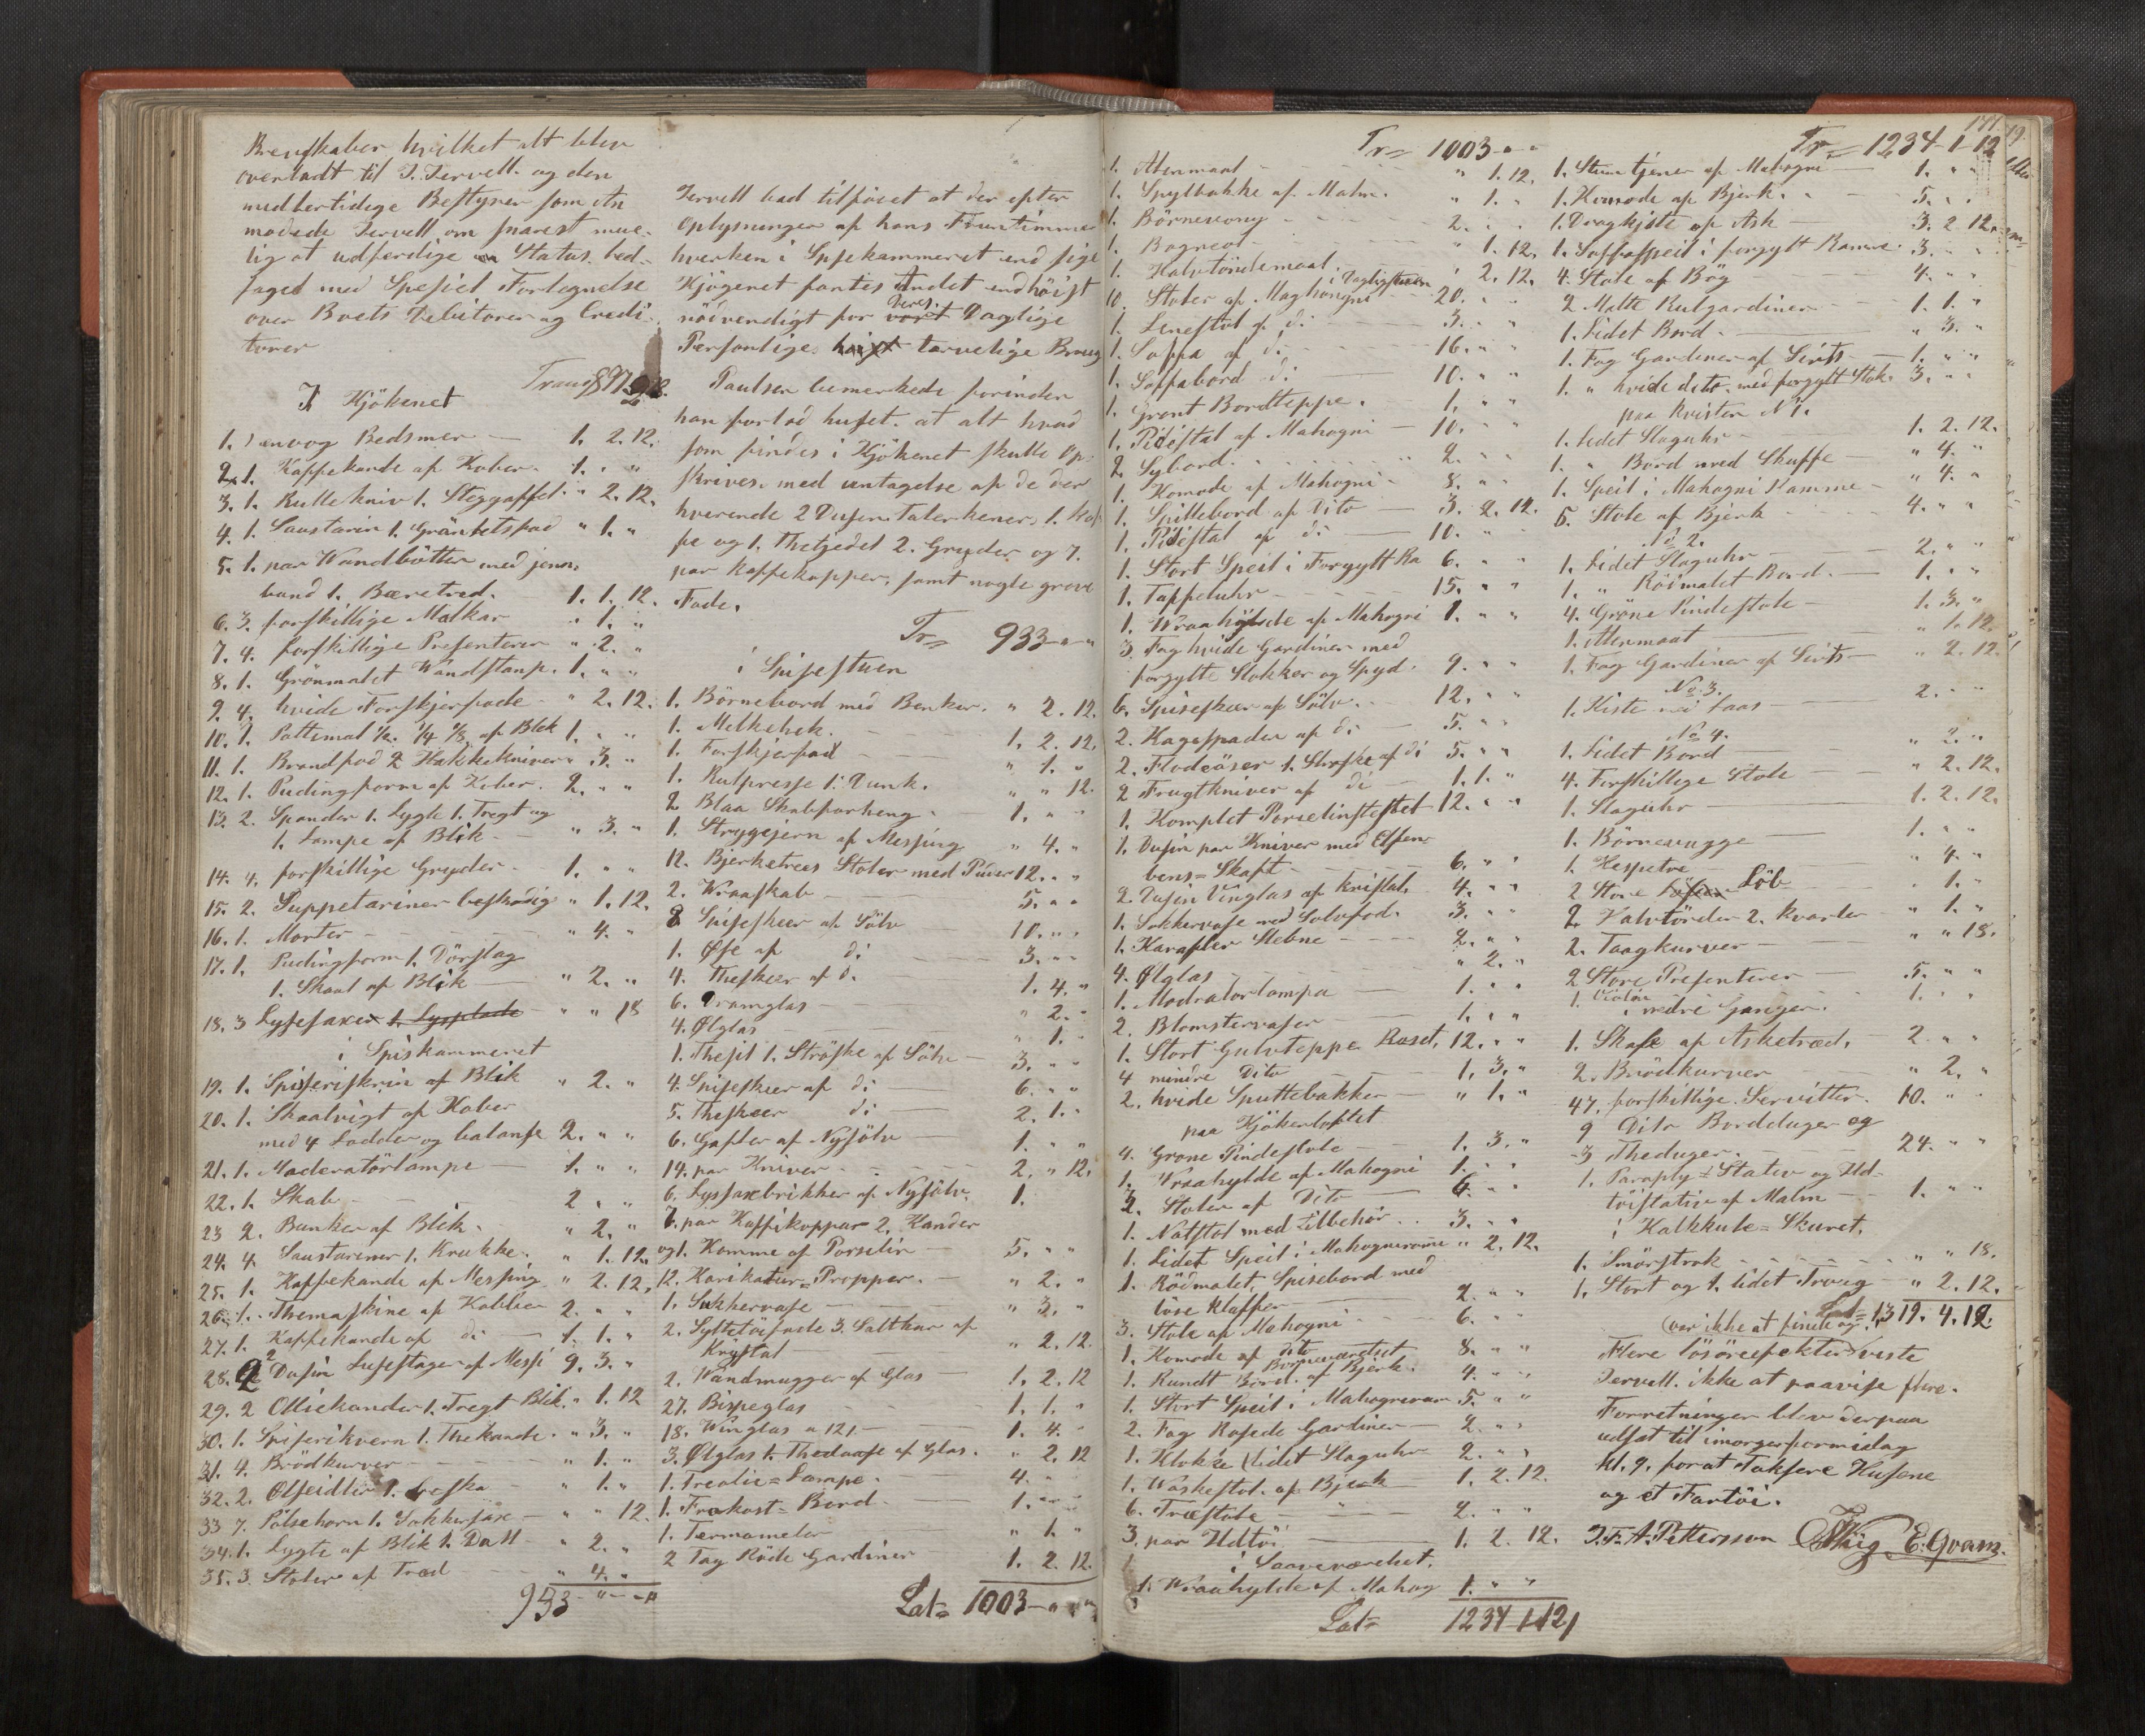 Brevskaber hvilket alt blev
overladt til J. Jervell. og den
midlertidige Bestyrer som an
modede Jervell om snarest mue-
lig at udferdige en Status. led-
saget med Spesiel Fortegnelse
over Boets Debitorer og Credi-
torer
Transp
I Kjökenet
1. 1 Bedsmer — 1. 2. 12.
2. 1. Kaffekande af Kober. 1. " "
3. 1. Rullekniv 1. Steggaffel. " 2. 12.
4. 1. Saustarin 1. Gränketsfad " 1. "
5. 1. par Vandbötter med jern-
baand 1. Bæretred. 1. 1. 12.
6. 3. forskillige Malkar " 1. "
7. 4. forskillige Presenterer " 2. "
8. 1. Grönmalet Vandstamp. 1. " "
9. 4. hvide Forskjerfade " 2. 12.
10. 1. Pottemal 1/2. 1/4 1/8 af Blik 1. " "
11. 1. Brandfad 2 Hakkekniver " 3. "
12. 1. Pudingform af Kober. 2. " "
13. 2. Spander 1. Lygte 1. Tregt og
1. Lampe af Blik " 3. "
14. 4. forskillige Gryder 1. " "
15. 2. Suppetariner beskadig " 1. 12.
16. 1. Morter " 4. "
17. 1. Pudingform 1. Dörslag
1. Skaal af Blik " 2. "
18. 3 Lysesaxer 1. Lysplade " " 18
i Spiskammeret
19. 1. Spiseriskrin af Blik " 2. "
20. 1. Skaalvigt af Kober
med 4 Lodder og balanse 2. " "
21. 1. Moderatörlampe 1. " "
22. 1. Skab 2 " "
23 2. Bunker af Blik. " 2. "
24. 4. Saustariner 1. Krukke. " 1. 12.
25. 1. Kaffekande af Messing " 2. 12.
26. 1. Themaskine af Kobber 2. " "
27. 1. Kaffekande af do 1. 1. "
28. 2 Dusin Lysestager af Messi 9. 3. "
29. 2 Olliekander 1. Tregt Blik. " 1. 12
30. 1. Spiserikvern 1. Thekande. " 3. "
31. 4. Brödkurver " 1. "
32. 2. Olseidler 1. Leske " 1. "
33 7. Pölsehorn 1. Sokkersax " " 12.
34. 1. Lygte af Blik 1. Dall " 2. "
35. 3. Stoler af Træd " 4. "
933 " "
Jervell bad tilföiet at der efter
Oplysninger af hans Fruentimmer
hverken i Spisekammeret end sige
Kjögenet fantes Andet end höist
nödvendigt for vort Deres Daglige
Personlige höist tarvelige Brug
Paulsen bemerkede forinden
han forlod huset. at alt hvad
som findes i Kjökenet skulle op-
skrives. med untagelse af de der
hverende 2 Dusin Talerkener, 1. Kaf
fe og 1. Thekjedel 2. Gryder og 7.
par Kaffekopper, samt nogle grove
Fade.
Tr= 933 - " - "
i Spisestuen
1. Börnebord med Benker. " 2. 12.
1. Melkehek. 1. 2. 12.
1. Forskjerfad " 1. "
1. Rulpresse 1. Dunk. " " 12.
2 Blaa Skabforheng 1. " "
1. Strygejern af Messing " 4. "
12. Bjerketræes Stoler med Puder 12. " "
2. Vraaskab 5. " "
8 Spiseskeer af Sölv 10. " "
1. Öse af do 3. " "
4. Theskeer af do 1. 4. "
6. Dramglas " 2. "
4. Ölglas " 1. "
1. Thesil 1. Ströske af Sölv 3. " "
4. Spiseskeer af do 6. " "
5. Theskeer do 2. 1. "
6. Gafler af Nysölv 1. " "
14. par Kniver 2. " 12.
6. Lyssaxbrikker af Nysölv. 1.
7. par Kaffikoppar 2. Kander
og 1. Komme af Porselin 5. " "
12. Karikatur=Propper. " 2. "
1. Sukkervase " 3. "
2. Syltetöifade 3. Saltkar af
Krystal " 2. 12.
2. Vandmugger af Glas 1. 2. 12
27. Bispeglas 1. 1. "
18. Winglas a 12/ 1. 4. "
3. Ölglas 1. Thedaase af Glas. " 2. 12
1. Trealie=Lampe. 4. "
1. Frokost=Bord 1. " "
1. Termometer " 1. "
2 Fag Röde Gardiner 1. 2. 12.
Lat= 1003 - " "
Tr= 1003 - " "
1. Altermaal " 1. 12.
1. Spytbakke af Malm. " 1. "
1. Börnevong 2. " "
1. Bagreol " 1. 12.
1. Halvtöndemaal. " 2. 12.
i Dagligstuen
10. Stoler af Maghongni 20. " "
1. Lenestol af do 3. " "
1. Soffa af do 16. " "
1. Soffabord do 10. " "
1. Grönt Bordteppe. 1. " "
1. Pidestal af Mahogni 10. " "
2. Sybord. 2. " "
1. Komode af Mahogni 8. " "
1. Spillebord af Dito 3. 2. 12.
1. Pidestal af do 10. " "
1. Stort Speil i Forgylt Ra 6. " "
1. Taffeluhr 15. " "
1. Vraahylde af Mahogni 1. " "
3. Fag hvide Gardiner med
forgylte Stokker og Spyd. 9. " "
6. Spiseskeer af Sölv. 12. " "
2. Kagespader af do 5. " "
2. Flodeöser 1. Ströske af do 5. " "
2 Frugtkniver af do 1. 1. "
1. Komplet Porselinstestel 12. " "
1. Dusin par Kniver med Elfen-
bens=Skaft 6. " "
2. Dusin Vinglas af Kristal. 4. " "
1. Sokkervase med Solvfod. 3. " "
1. Karafler Slebne 2. " "
4. Ölglas " 2. "
1. Modratorlampe 1. " "
2. Blomstervaser 1. " "
1. Stort Gulvteppe Roset, 12. " "
4 mindre Dito 1. 3. "
2. hvide Sputtebakker " 1. "
paa Kjökenloftet
4. Gröne Pindestole 1. 3. "
1. Vraahylde af Mahogni 1. " "
2. Stoler af Dito 6. " "
1. Natstol med Tilbehör .. 3. " "
1. Lidet Speil i Mahogniramme " 2. 12.
1. Rödmalet, Spisebord med
löse Klaffer 2. " "
3. Stole af Mahogni 6. " "
1. Komode af dito 8. " "
Borneværelset
1. Rundt Bord. af Bjerk. 4. " "
1. Stort Speil i Mahogniram 5. " "
2. Fag Rosede Gardiner 2. " "
1. Klokke (lidet Slaguhr 2. " "
1. Vaskestol. af Bjerk 1. 2. 12.
6. Træstole 2. " "
3. par Ildtöi 1. 2. 12.
i Soveværelset.
1. Vraahylde af Mahog 1. " "
Lat= 1234 - 1 - 12/
171.
Tr= 1234 - 1 - 12
1. Stumtjener af Mahogni 1. " "
1. Komode af Bjerk. 5. " "
1. Dragkiste af Ask 3. 2 12.
1. Soffaspeil i forgylt Ramme. 3. " "
4. Stole af Bög 4. " "
2 Malte Rulgardiner 1. 1. "
1. Lidet Bord. " 3. "
1. Fag Gardiner af Sirts 1. " "
1. " hvide dito. med forgylt Stok. 3. " "
paa Kvisten No 1.
1. Lidet Slaguhr 1. 2. 12.
1. " Bord med Skuffe " 4. "
1. Speil i Mahogni Ramme " 4. "
5. Stole af Bjerk 4. " "
No 2.
1. Lidet Slaguhr 2. " "
1. " Rödmalet Bord. 1. " "
4. Gröne Pindestole 1. 3. "
1. Altermaal " 1. 12.
1. Fag Gardiner af Sirts " 2. 12.
No 3.
1. Kiste med Laas 2. " "
No 4.
1. Lidet Bord " 2. "
4. Forskillige Stole " 2. 12.
1. Slaguhr 1. 2. 12.
1. Börnevugge 1. " "
1. Hespetre " 4. "
2 Store Löb " 1. "
2. Halvtönder 2. Kvarter " 1. "
2. Taagkurver " " 18.
2 Store Presenterer 5. " "
1. Violin 1. " "
i nedre Ganger.
1. Skabe af Asketræd, 2 " "
2. Brödkurver " 2. "
47. forskillige. Servitter. 10. " "
9 Dito Bordduger og
3 Theduger. 24. " "
1. Paraply=Stativ og Ild-
töistativ af Malm 1. " "
i Kalkkule=Skuret.
1. Smörstrok " " 18.
1. Stort og 1. lidet Traug " 2. 12.
Lat= 1319. 4. 12.
(var ikke at finde og
Flere lösöreefekter) viste
Jervell. ikke at paavise flere.
Forretninger blev derpaa
udsat til imorgenformidag
kl. 9. forat Taksere Husene
og et Fartöi.
J. F. A. Pettersson E. Qvam.